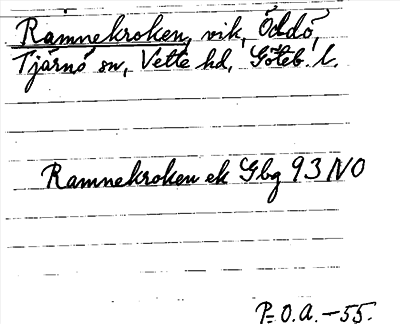 Ramnekroken, vik, Öddö,
Tjärnö sn, Vette hd, Göteb. l.
Ramnekroken ek Gbg 93 NO
P=O.A. -55.